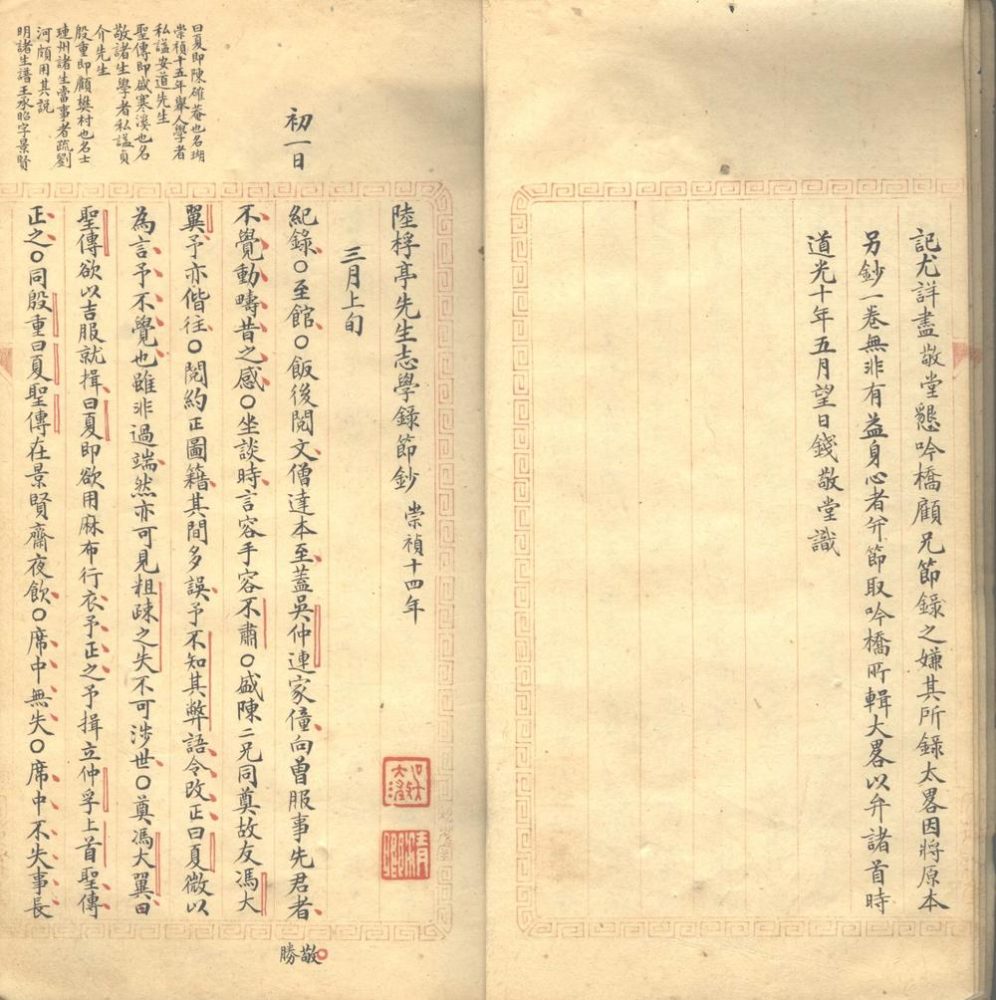 記尤詳盡敬堂懇吟橋顧兄節錄之嫌其所錄太畧因將原本
另鈔一卷無非有益身心者弁節取吟橋所輯大畧以弁諸首時
道光十年五月望日錢敬堂識
陸桴亭先生志學錄節鈔 崇禎十四年
三月上旬
初一日
紀錄○至館○飯後閱文僧達本至蓋吳仲連家僮向曾服事先君者
敬勝
不覺動疇昔之感○坐談時言容手容不肅○盛陳二兄同奠故友馮大
翼予亦偕往○閱約正圖籍其間多誤予不知其弊語令改正曰夏微以
為言予不覺也雖非過端然亦可見粗疎之失不可涉世○奠馮大翼田
聖傳欲以吉服就揖曰夏即欲用麻布行衣予正之予揖立仲孚上首聖傳
正之○同殷重曰夏聖傳在景賢齋夜飲○席中無失○席中不失事長
曰夏即陳確菴也名瑚
崇禎十五年舉人學者
私諡安道先生
聖傳即盛寒溪也名
敬諸生學者私諡貞
介先生
殷重即顧樊村也名士
璉州諸生當事者疏劉
河頗用其說
明諸生譜王承昭字景賢